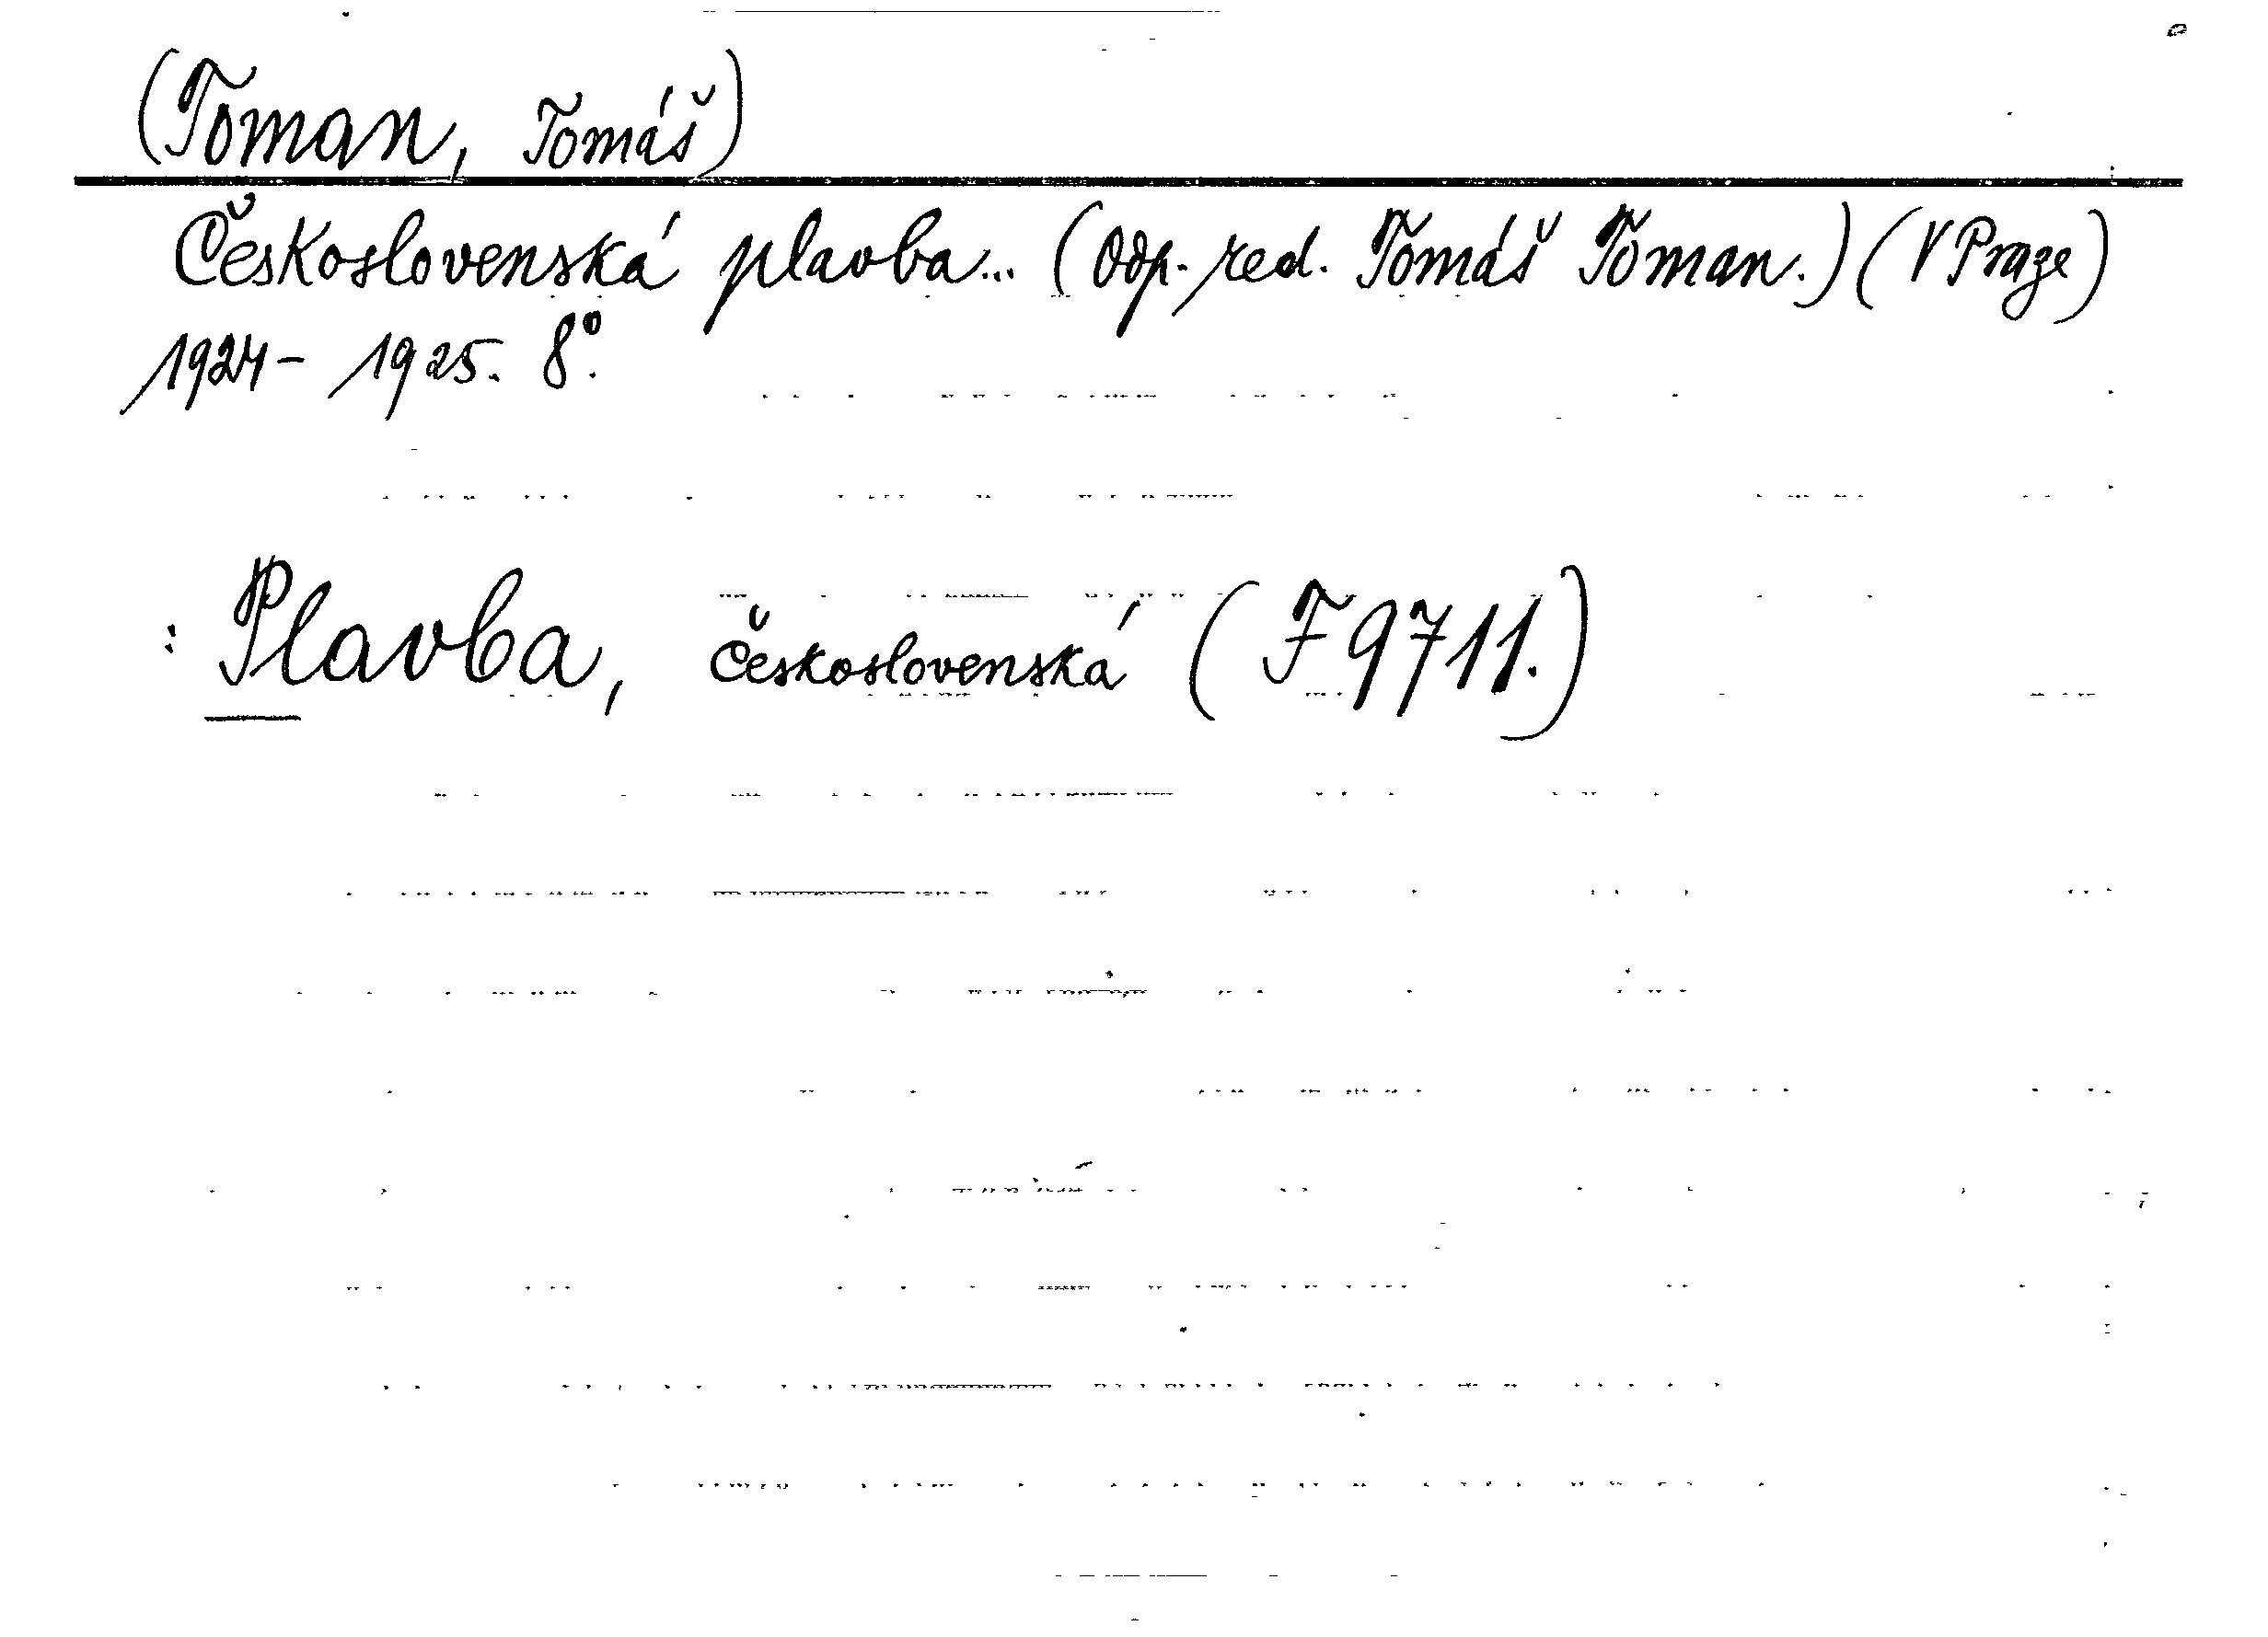 (Toman, Tomáš)
Československá plavba... (Odp. red. Tomáš Toman.) (V Praze)
1924- 1925. 8°.
: Plavba, Československá (F 9711.)